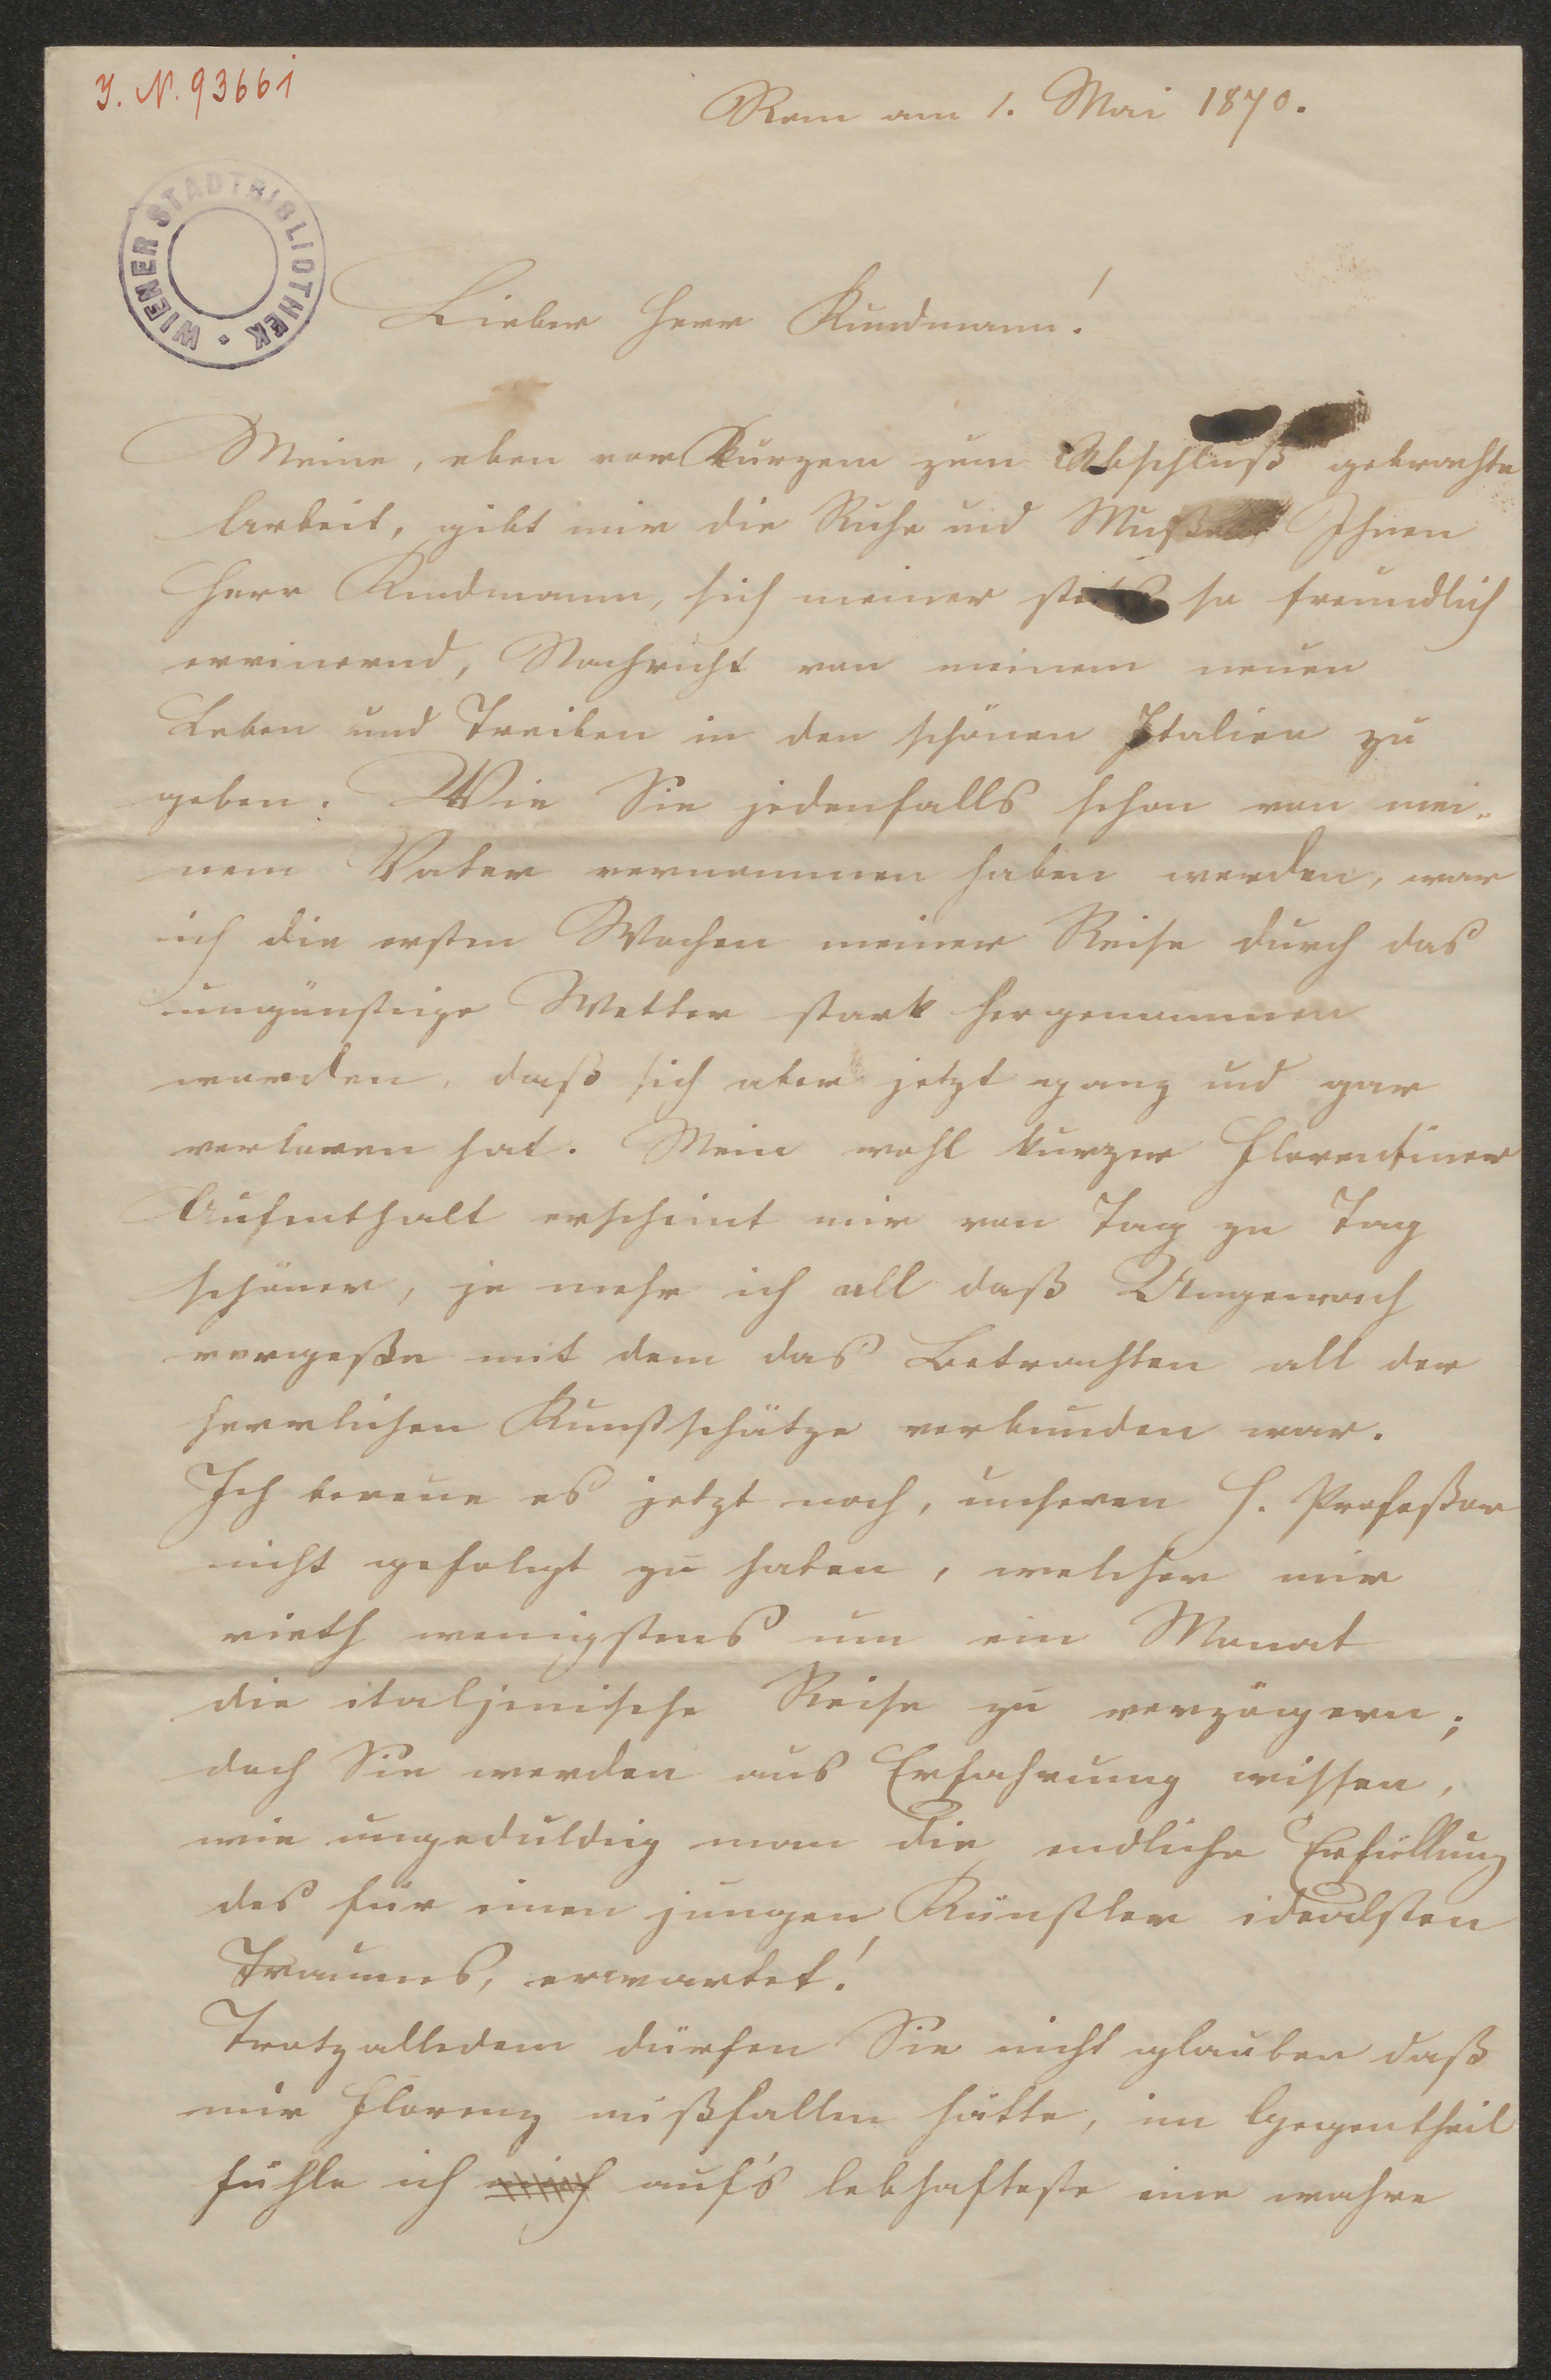 J. N. 93661
Rom am 1. Mai 1870.
WIENER STADTBIBLIOTHEK
Lieber Herr Kundmann!
Meine, eben vor Kurzem zum Abschluß gebrachte
Arbeit, gibt mir die Ruhe und Muße Ihnen
Herr Kundmann, sich meiner stets so freundlich
errinernd, Nachricht von meinem neuen
Leben und Treiben in den schönen Italien zu
geben. Wie Sie jedenfalls schon von mei-
nem Vater vernommen haben werden, war
ich die ersten Wochen meiner Reise durch das
ungünstige Wetter stark hergenommen
worden, daß sich aber jetzt ganz und gar
verloren hat. Mein wohl kurzer Florentiner
Aufenthalt erscheint mir von Tag zu Tag
schöner, je mehr ich all daß Ungemach
vergeße mit dem das Betrachten all der
herrlichen Kunstschätze verbunden war.
Ich bereue es jetzt noch, unseren H. Profeßor
nicht gefolgt zu haben, welcher mir
rieth wenigstens um ein Monat
die italjenische Reise zu verzögern;
doch Sie werden aus Erfahrung wissen,
wie ungeduldig man die endliche Erfüllung
des für einen jungen Künstler idealsten
Traumes, erwartet!
Trotzalledem dürfen Sie nicht glauben daß
mir Florenz mißfallen hätte, im Gegentheil
fühle ich mich auf's lebhafteste eine wahre